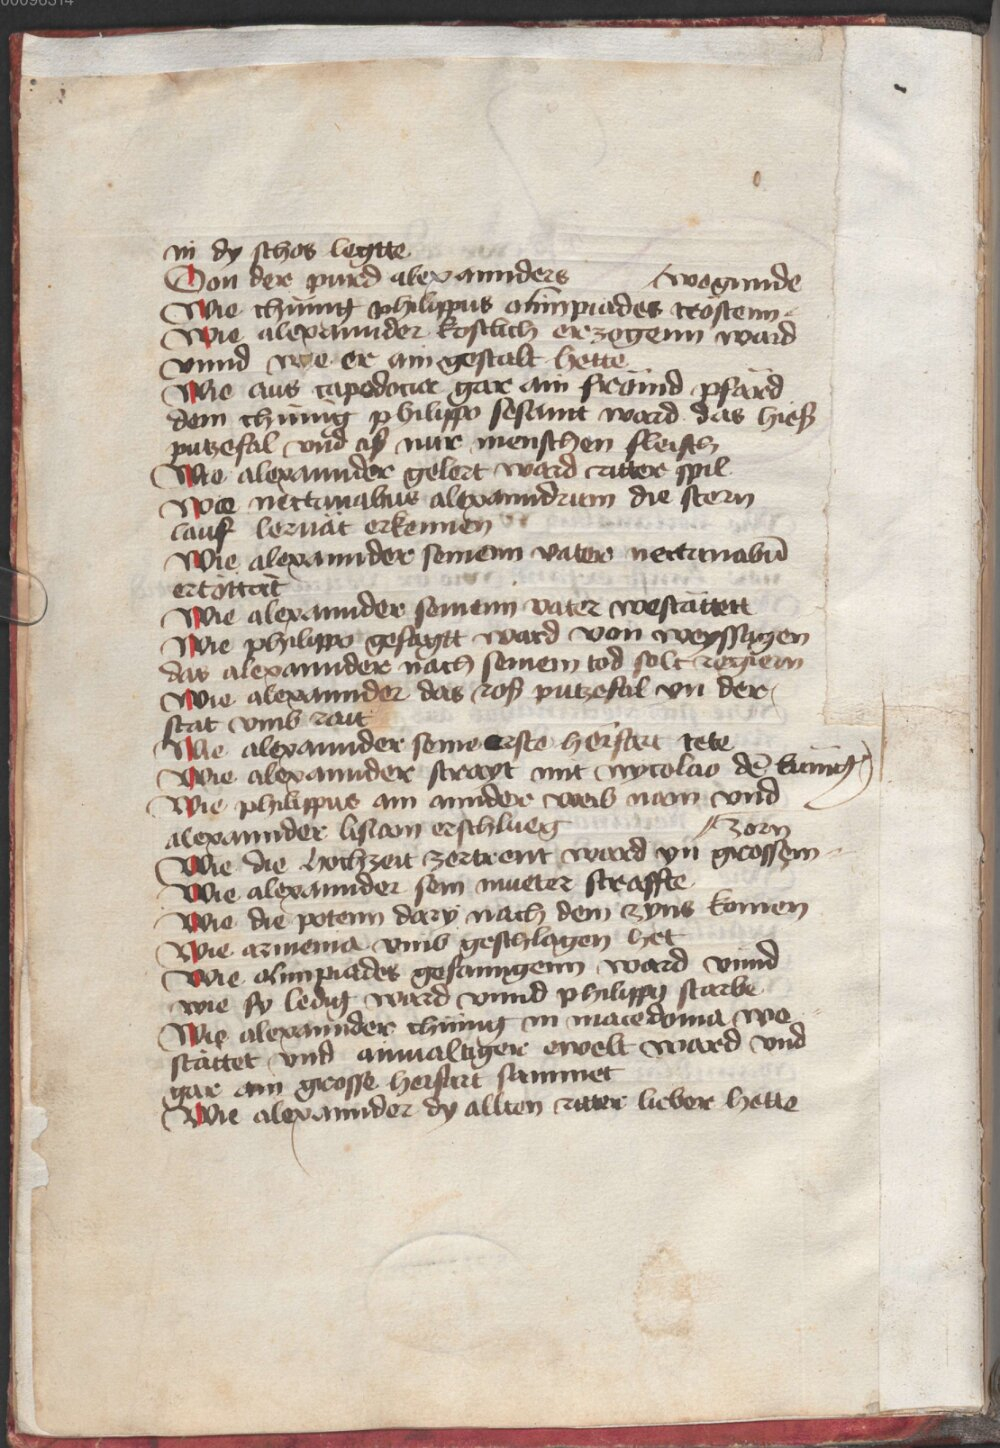 in dy schos legtte
Von der purd alexannders
Wie chünig philippus olimpiades trostenn wegunde
Wie alexannder kostlich erzogenn ward
vnnd wie er ain gestalt hette
Wie aus capedocia gar ain fraind pfärd
dem chünig philippo gesannt ward das hieß
putzefal vnd aß nur menschen fleisch
Wie alexannder gelert ward ritter spil
Wie nectanabus alexanndrum die stern
lauf lernät erkennen
Wie alexannder seinenn vater nectanabū
ertöttät
Wie alexannder seinenn vater westättett
Wie philippo gesagtt ward von weyssagen
das alexannder nach seinem tod solt regiern
Wie alexannder das roß putzefal yn der
stat vmb rait
Wie alexannder seine erste herfart tete
Wie alexannder strayt mit nycolao dē künig
Wie philippus ain annder weib nam vnd
alexannder lisiam erschlueg
Wie die hochzeit zertrent ward yn grossem zorn
Wie alexannder sein mueter straffte
Wie die potenn dary nach dem zyns komen
Wie armenia vmb geschlagen het
Wie olimpiades gefanngenn ward vnnd
wie sy ledig ward vnnd philippus starbe
Wie alexannder chünig in macedonia we
stättet vnd ainualtiger erwelt ward vnd
gar ain grosse herfart sammet
Wie alexannder dy allten ritter lieber hette